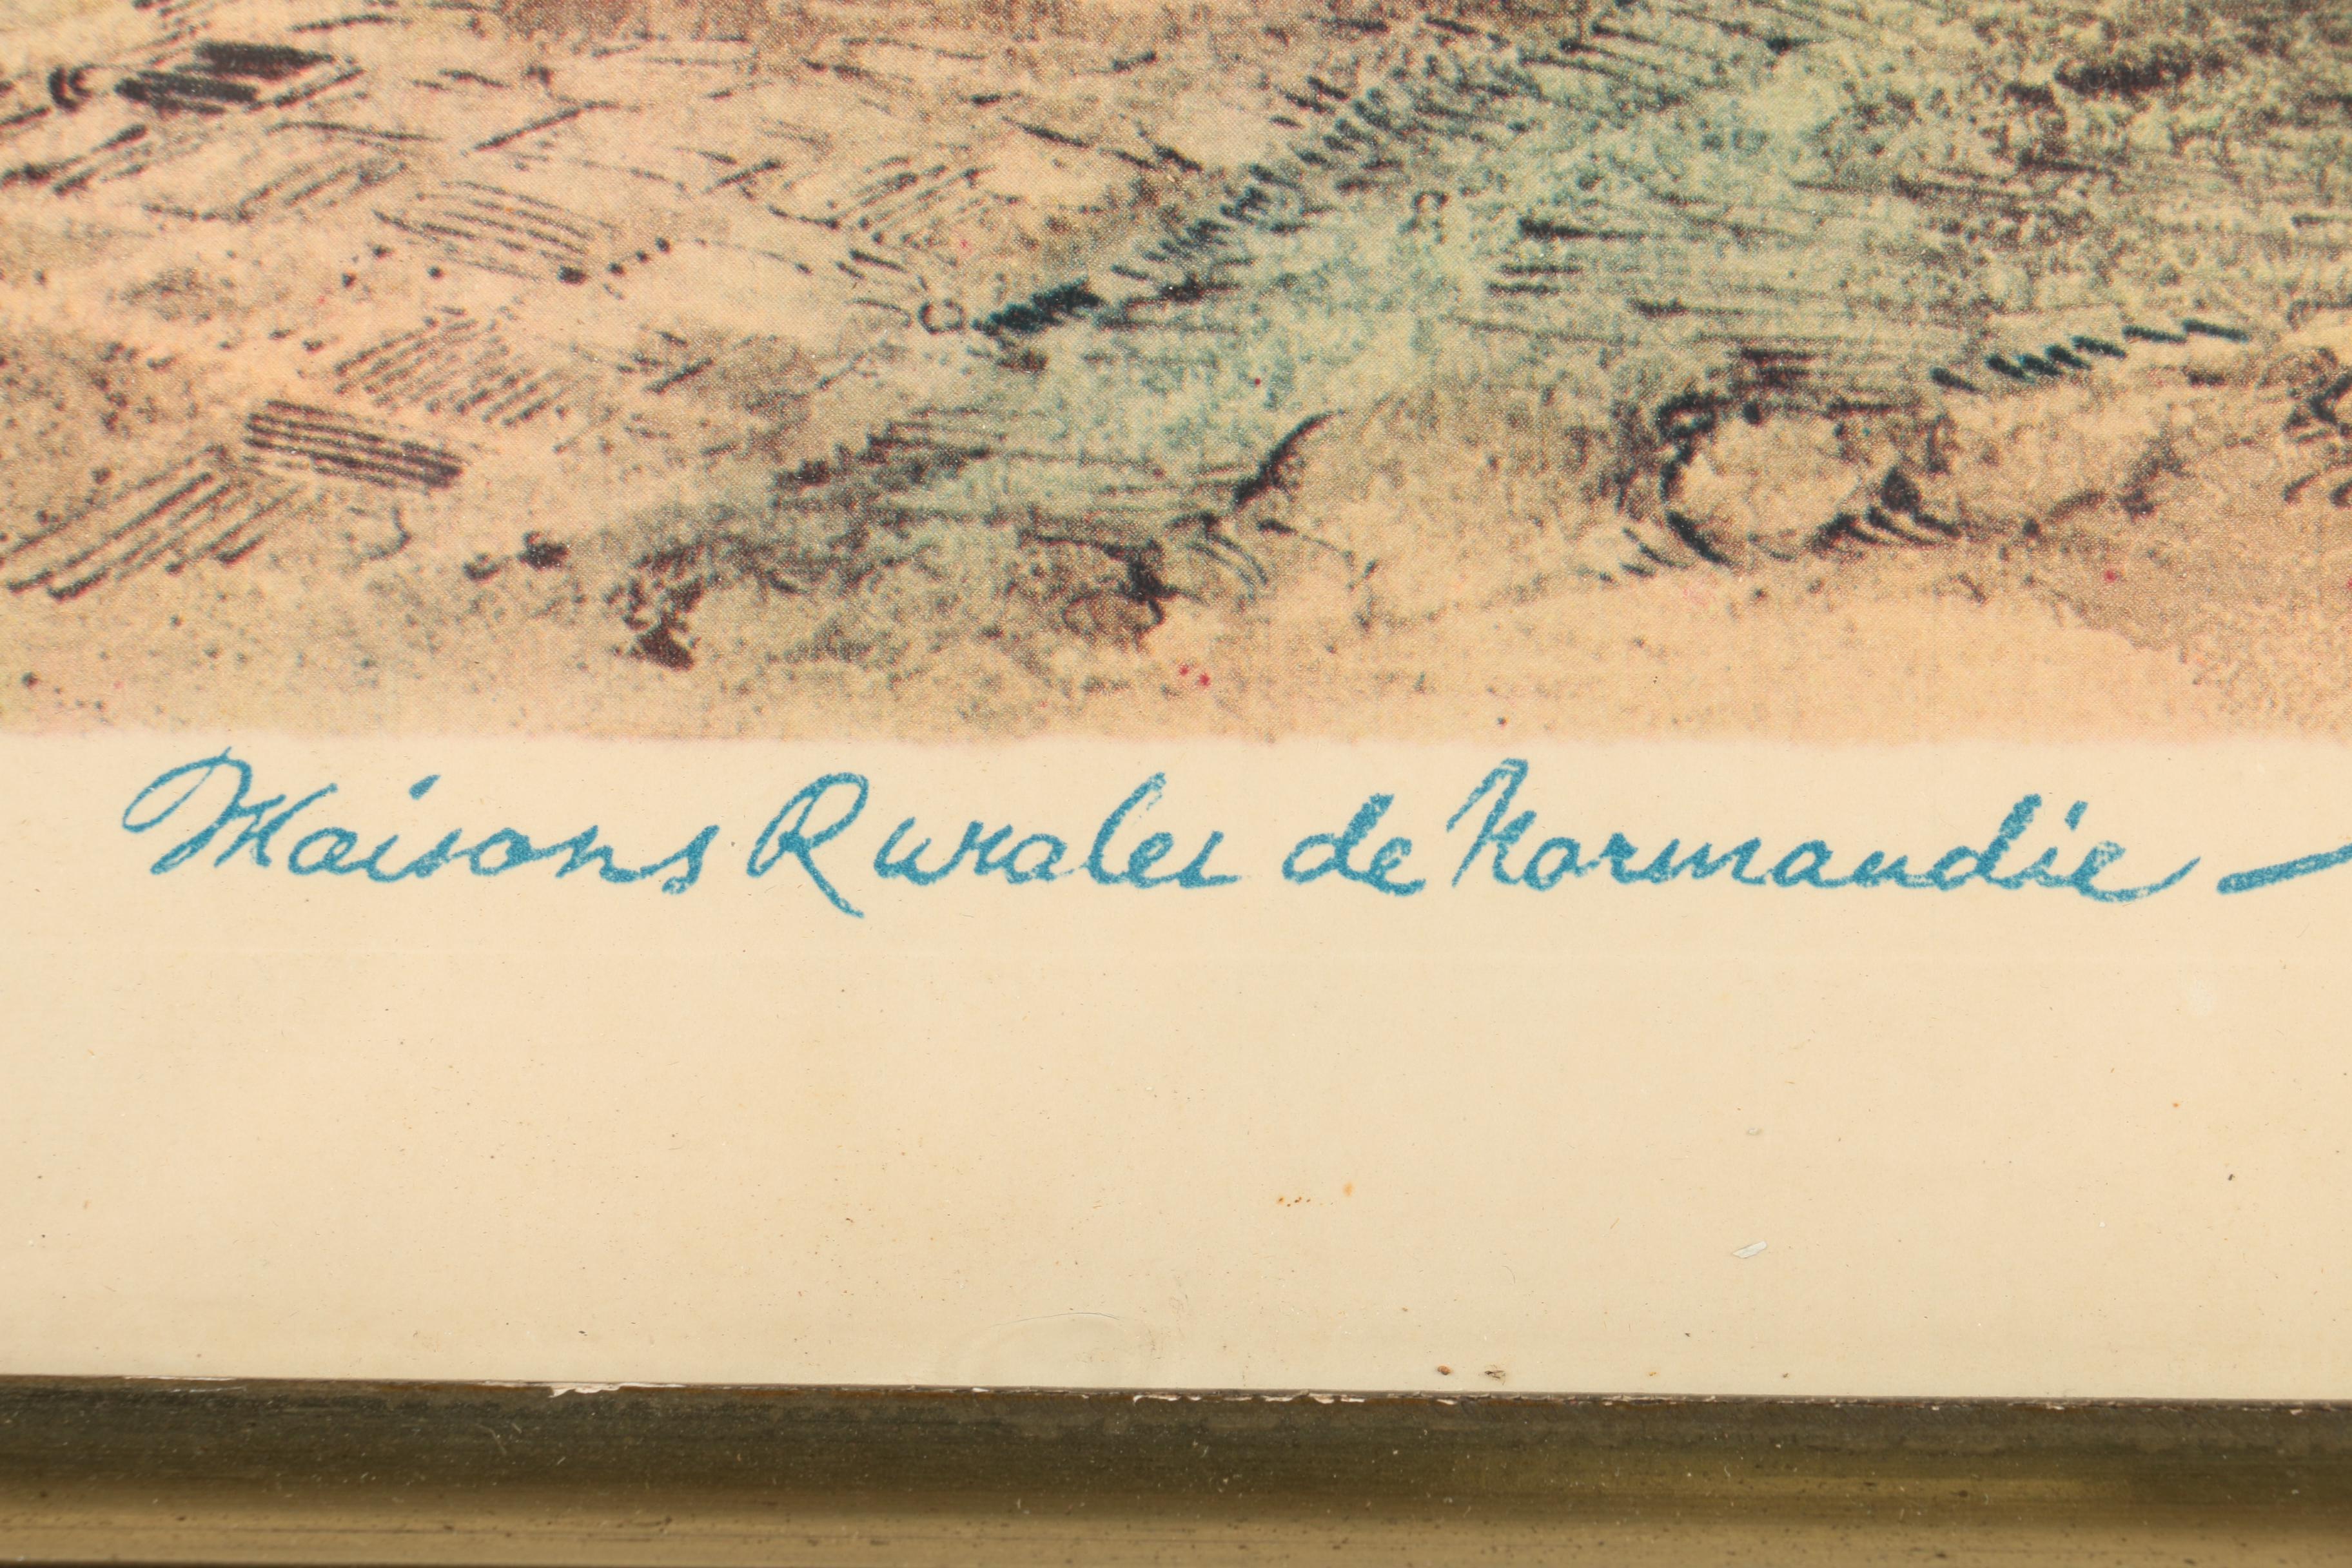 Maisons Rurales de Normandie —